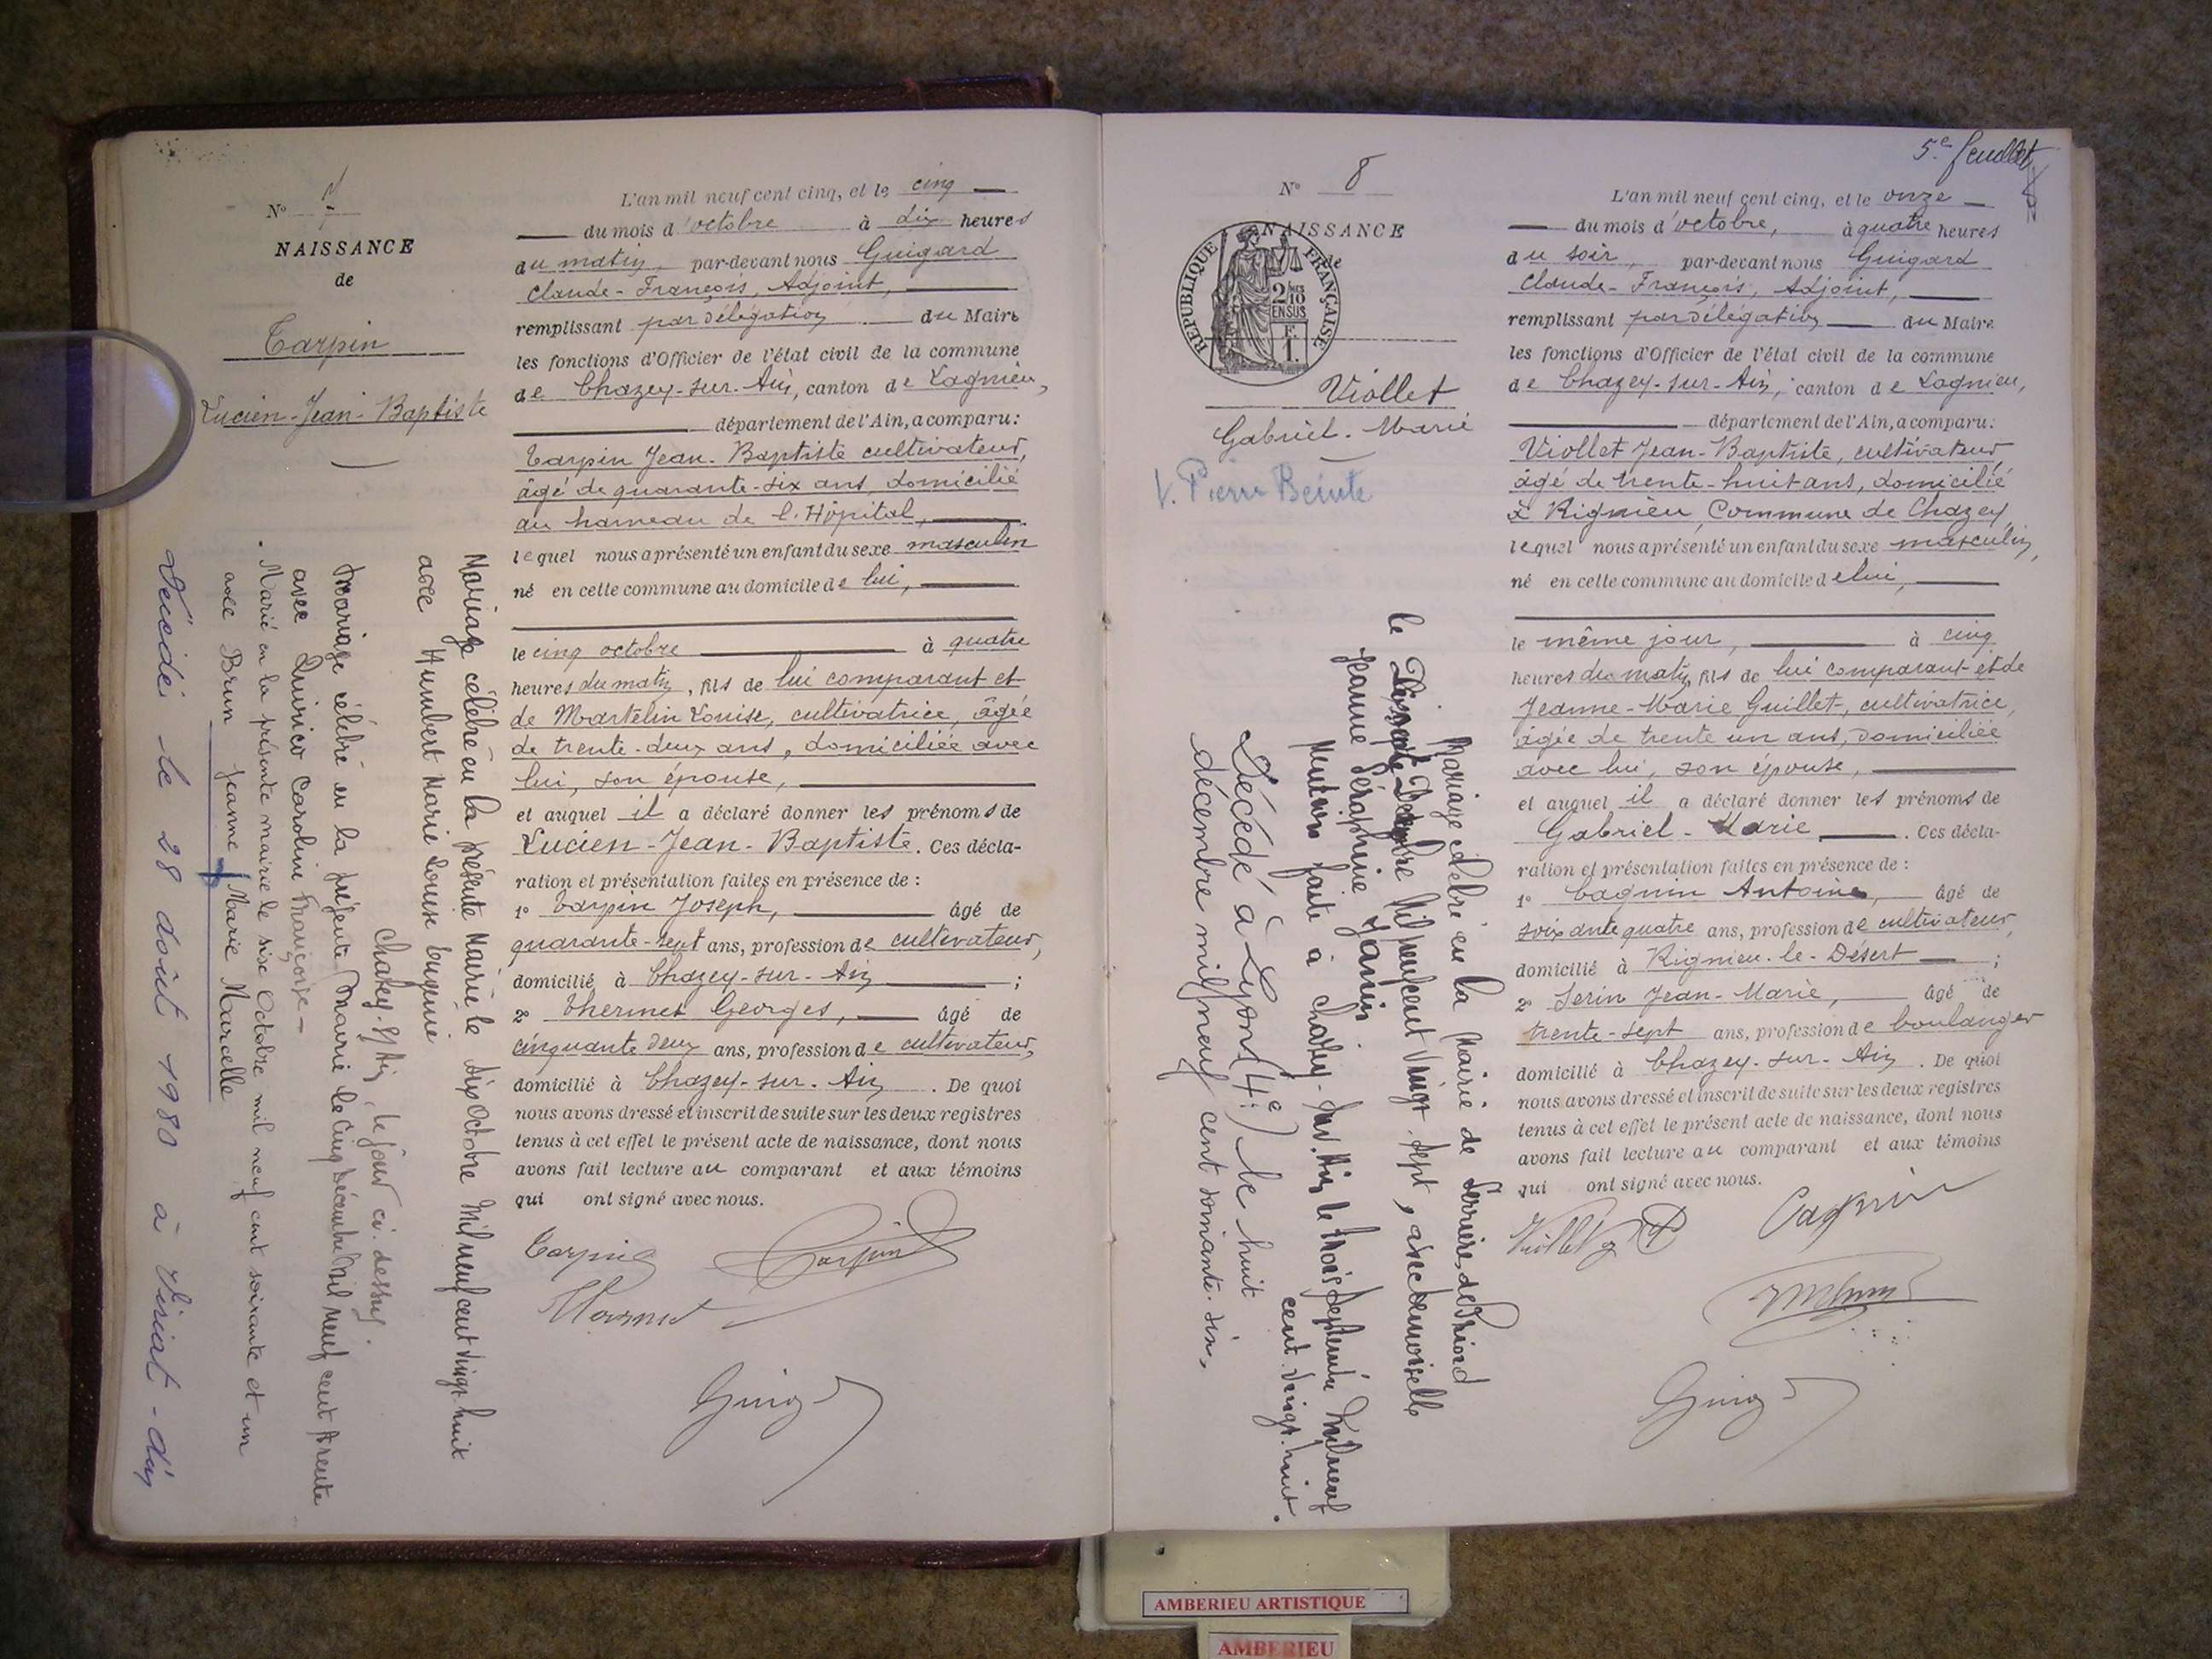 N° 7
NAISSANCE
de
Tarpin
Lucien-Jean-Baptiste
L'an mil neuf cent cinq, et le cinq
du mois d'octobre à dix heures
du matin, par-devant nous Guigard
Claude-François, Adjoint,
remplissant par délégation du Maire
les fonctions d'Officier de l'état civil de la commune
de Chazey-sur-Ain, canton de Lagnieu,
département de l'Ain, a comparu:
Tarpin Jean-Baptiste cultivateur,
âgé de quarante-six ans, domicilié
au hameau de l'Hôpital,
lequel nous a présenté un enfant du sexe masculin
né en cette commune au domicile de lui,
le cinq octobre à quatre
heures du matin, fils de lui comparant et
de Martelin Louise, cultivatrice, âgée
de trente-deux ans, domiciliée avec
lui, son épouse,
et auquel il a déclaré donner les prénoms de
Lucien-Jean-Baptiste. Ces décla-
ration et présentation faites en présence de :
1° Tarpin Joseph, âgé de
quarante-sept ans, profession de cultivateur,
domicilié à Chazey-sur-Ain ;
2° Thermet Georges, âgé de
cinquante deux ans, profession de cultivateur,
domicilié à Chazey-sur-Ain. De quoi
nous avons dressé et inscrit de suite sur les deux registres
tenus à cet effet le présent acte de naissance, dont nous
avons fait lecture au comparant et aux témoins
qui ont signé avec nous.
Tarpin Tarpin
Guigard
Mariage célébré en la présente Mairie le six Octobre Mil neuf cent vingt huit
avec Humbert Marie Louise Eugénie
Chazey-s/Ain, le jour ci-dessus.
Mariage célébré en la présente Mairie le Cinq Décembre Mil neuf cent trente
avec Quirico Caroline Françoise
Marié en la présente mairie le six Octobre mil neuf cent soixante et un
avec Brun Jeanne Marie Marcelle
Décédé le 28 août 1980 à Viriat-d'Ain
5e feuillet
N° 8
NAISSANCE
de
RÉPUBLIQUE FRANÇAISE
2/10
EN SUS
F.
1.
Viollet
Gabriel-Marie
V. Pierre Beinte
L'an mil neuf cent cinq, et le onze
du mois d'octobre, à quatre heures
du soir, par-devant nous Guigard
Claude-François, Adjoint,
remplissant par délégation du Maire
les fonctions d'Officier de l'état civil de la commune
de Chazey-sur-Ain, canton de Lagnieu,
département de l'Ain, a comparu:
Viollet Jean-Baptiste, cultivateur
âgé de trente-huit ans, domicilié
à Rignieu, Commune de Chazey,
lequel nous a présenté un enfant du sexe masculin,
né en cette commune au domicile de lui,
le même jour, à cinq
heures du matin, fils de lui comparant et de
Jeanne-Marie Guillet, cultivatrice,
âgée de trente un ans, domiciliée
avec lui, son épouse,
et auquel il a déclaré donner les prénoms de
Gabriel-Marie. Ces décla-
ration et présentation faites en présence de :
1° Cagnin Antoine, âgé de
soixante quatre ans, profession de cultivateur,
domicilié à Rignieu-le-Désert ;
2° Serin Jean-Marie, âgé de
trente-sept ans, profession de boulanger
domicilié à Chazey-sur-Ain. De quoi
nous avons dressé et inscrit de suite sur les deux registres
tenus à cet effet le présent acte de naissance, dont nous
avons fait lecture au comparant et aux témoins
qui ont signé avec nous.
Viollet Cagnin
Guigard
Mariage célébré en la Mairie de Serrières de Briord
le Décembre Mil neuf cent vingt-sept, avec demoiselle
Jeanne Séraphine
Mention faite à Chazey-sur-Ain le trois Septembre Mil neuf
cent vingt-huit.
Décédé à Lyon (4e) le huit
décembre mil neuf cent soixante-six.
AMBERIEU ARTISTIQUE
AMBERIEU